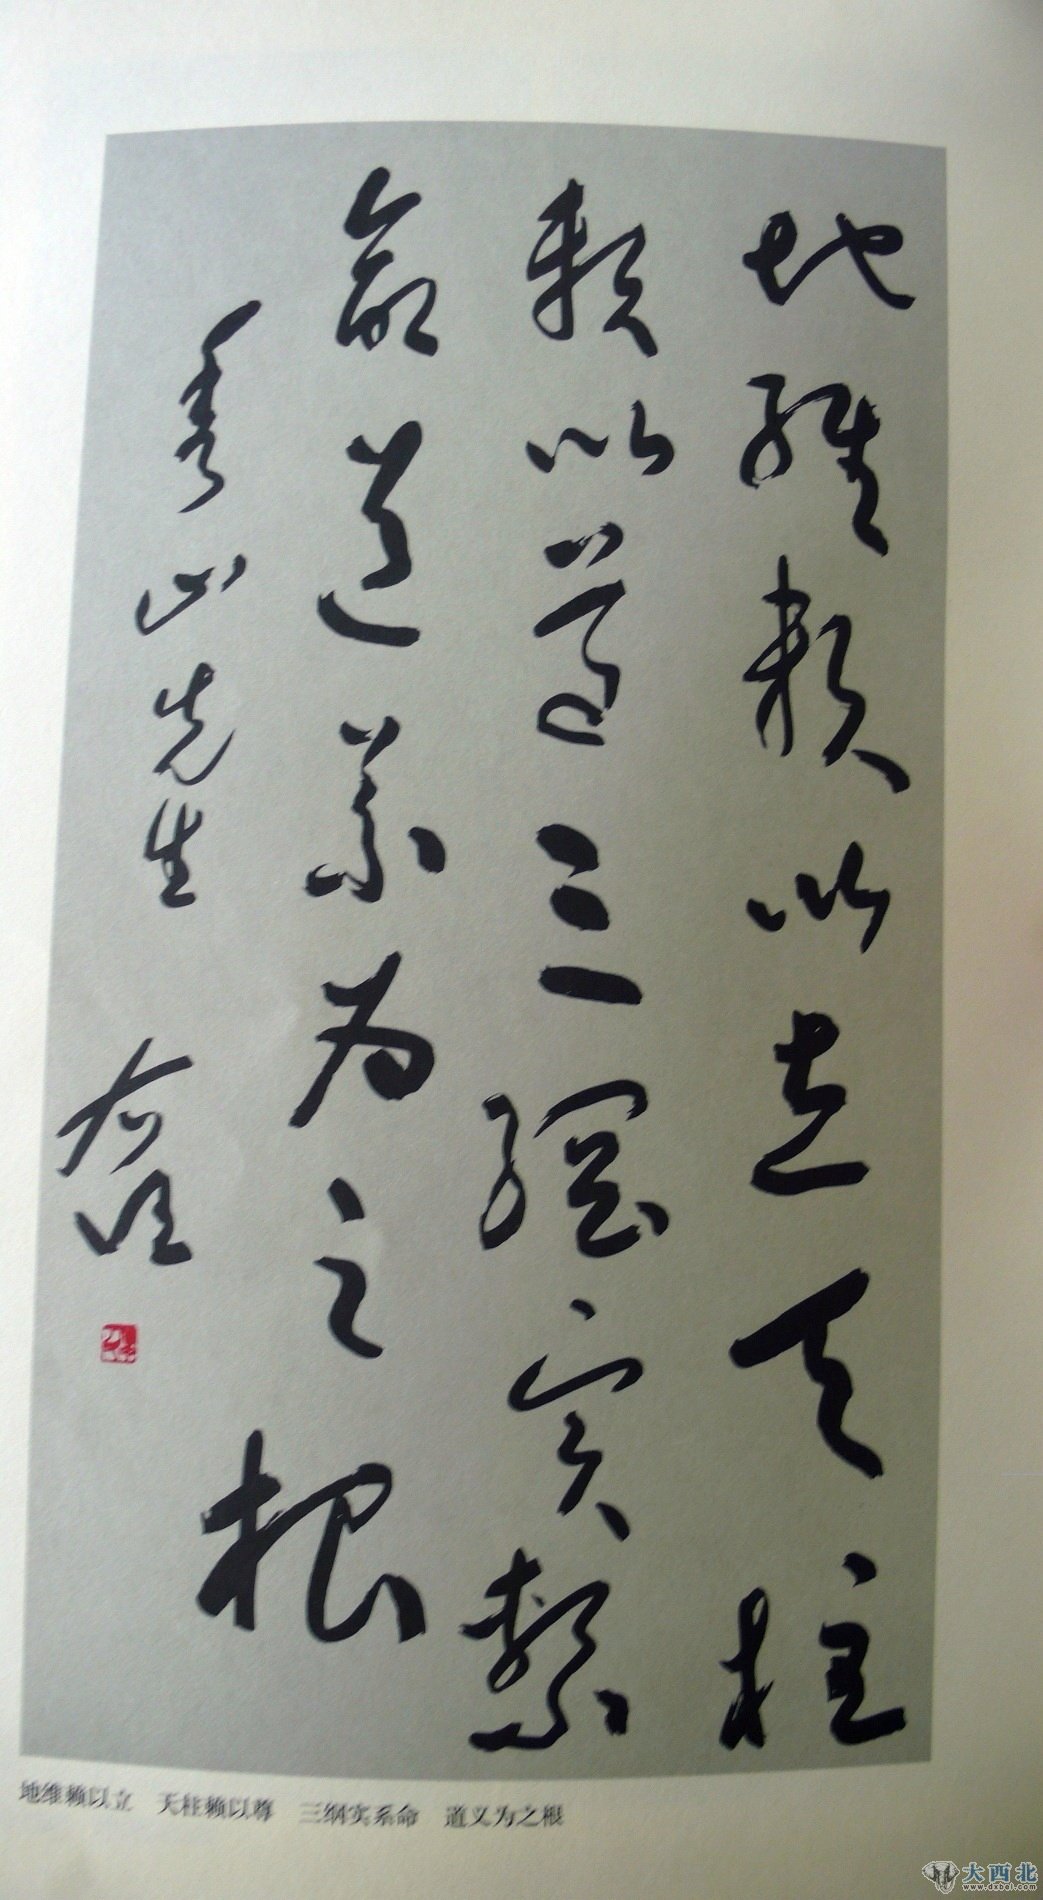 地維賴以立天柱
賴以尊三綱實繫
命道義為之根
秀山先生 右任
地维赖以立 天柱赖以尊 三纲实系命 道义为之根
大西北
www.dxbei.com